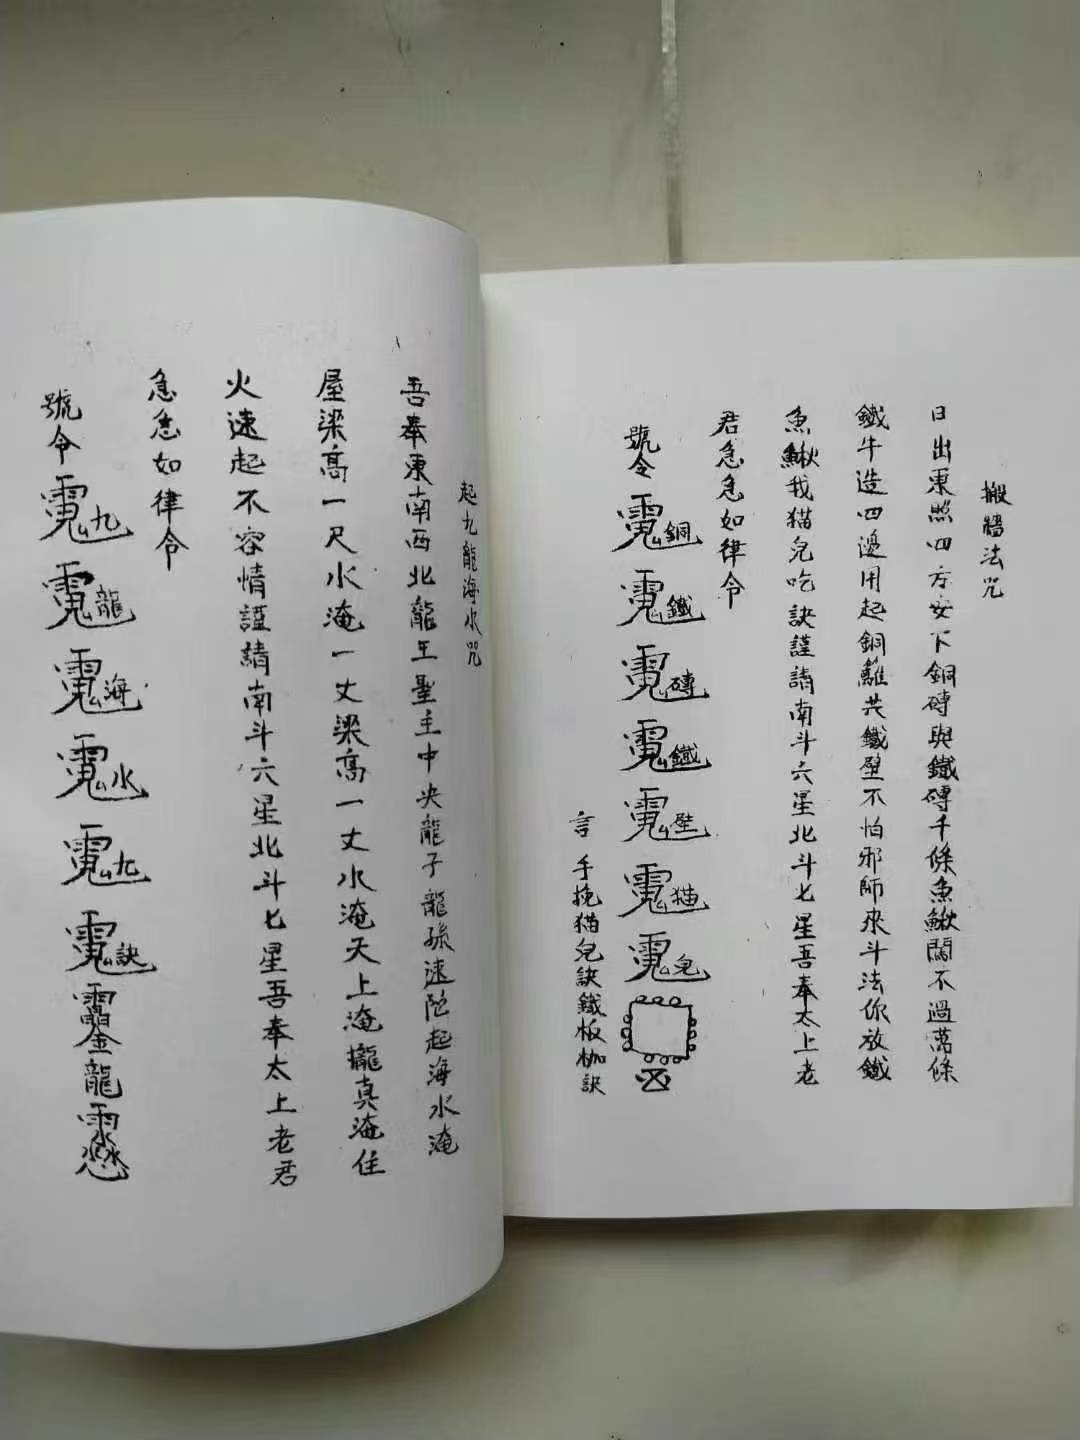 搬牆法咒
日出東照四方安下銅磚與鐵磚千條魚鰍闊不過萬條
鐵牛造四邊用起銅籬共鐵壁不怕邪師來斗法你放鐵
魚鰍我猫兒吃訣謹請南斗六星北斗七星吾奉太上老
君急急如律令
號令 銅 鐵 磚 鐵 壁 猫 兒
言 手挽猫兒訣鐵板枷訣
起九龍海水咒
吾奉東南西北龍王聖主中央龍子龍孫速陀起海水淹
屋梁高一尺水淹一丈梁高一丈水淹天上淹攏真淹住
火速起不容情謹請南斗六星北斗七星吾奉太上老君
急急如律令
號令 九 龍 海 水 九 訣 金龍